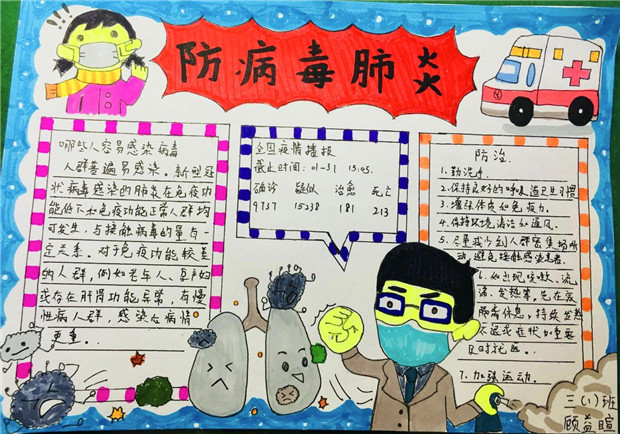 防病毒肺炎
哪些人容易感染病毒
人群普遍易感染。新型冠
状病毒感染的肺炎在免疫功
能低下和免疫功能正常人群均
可发生,与接触病毒的量有一
定关系。对于免疫功能较差
的人群,例如老年人、孕产妇
或存在肝肾功能异常,有慢
性病人群,感染后病情
更重。
全国疫情播报
截止时间:01-31 13:05.
确诊 疑似 治愈 死亡
9737 15238 181 213
防治
1.勤洗手
2.保持良好的呼吸道卫生习惯
3.增强体质和免疫力。
4.保持环境清洁和通风。
5.尽量减少到人群密集场所
动,避免接触感染患者。
6.如出现咳嗽、流
涕、发热等,先在家
隔离休息,持续发热
不退或症状加重要
及时就医。
7.加强运动.
三(1)班
顾益暄